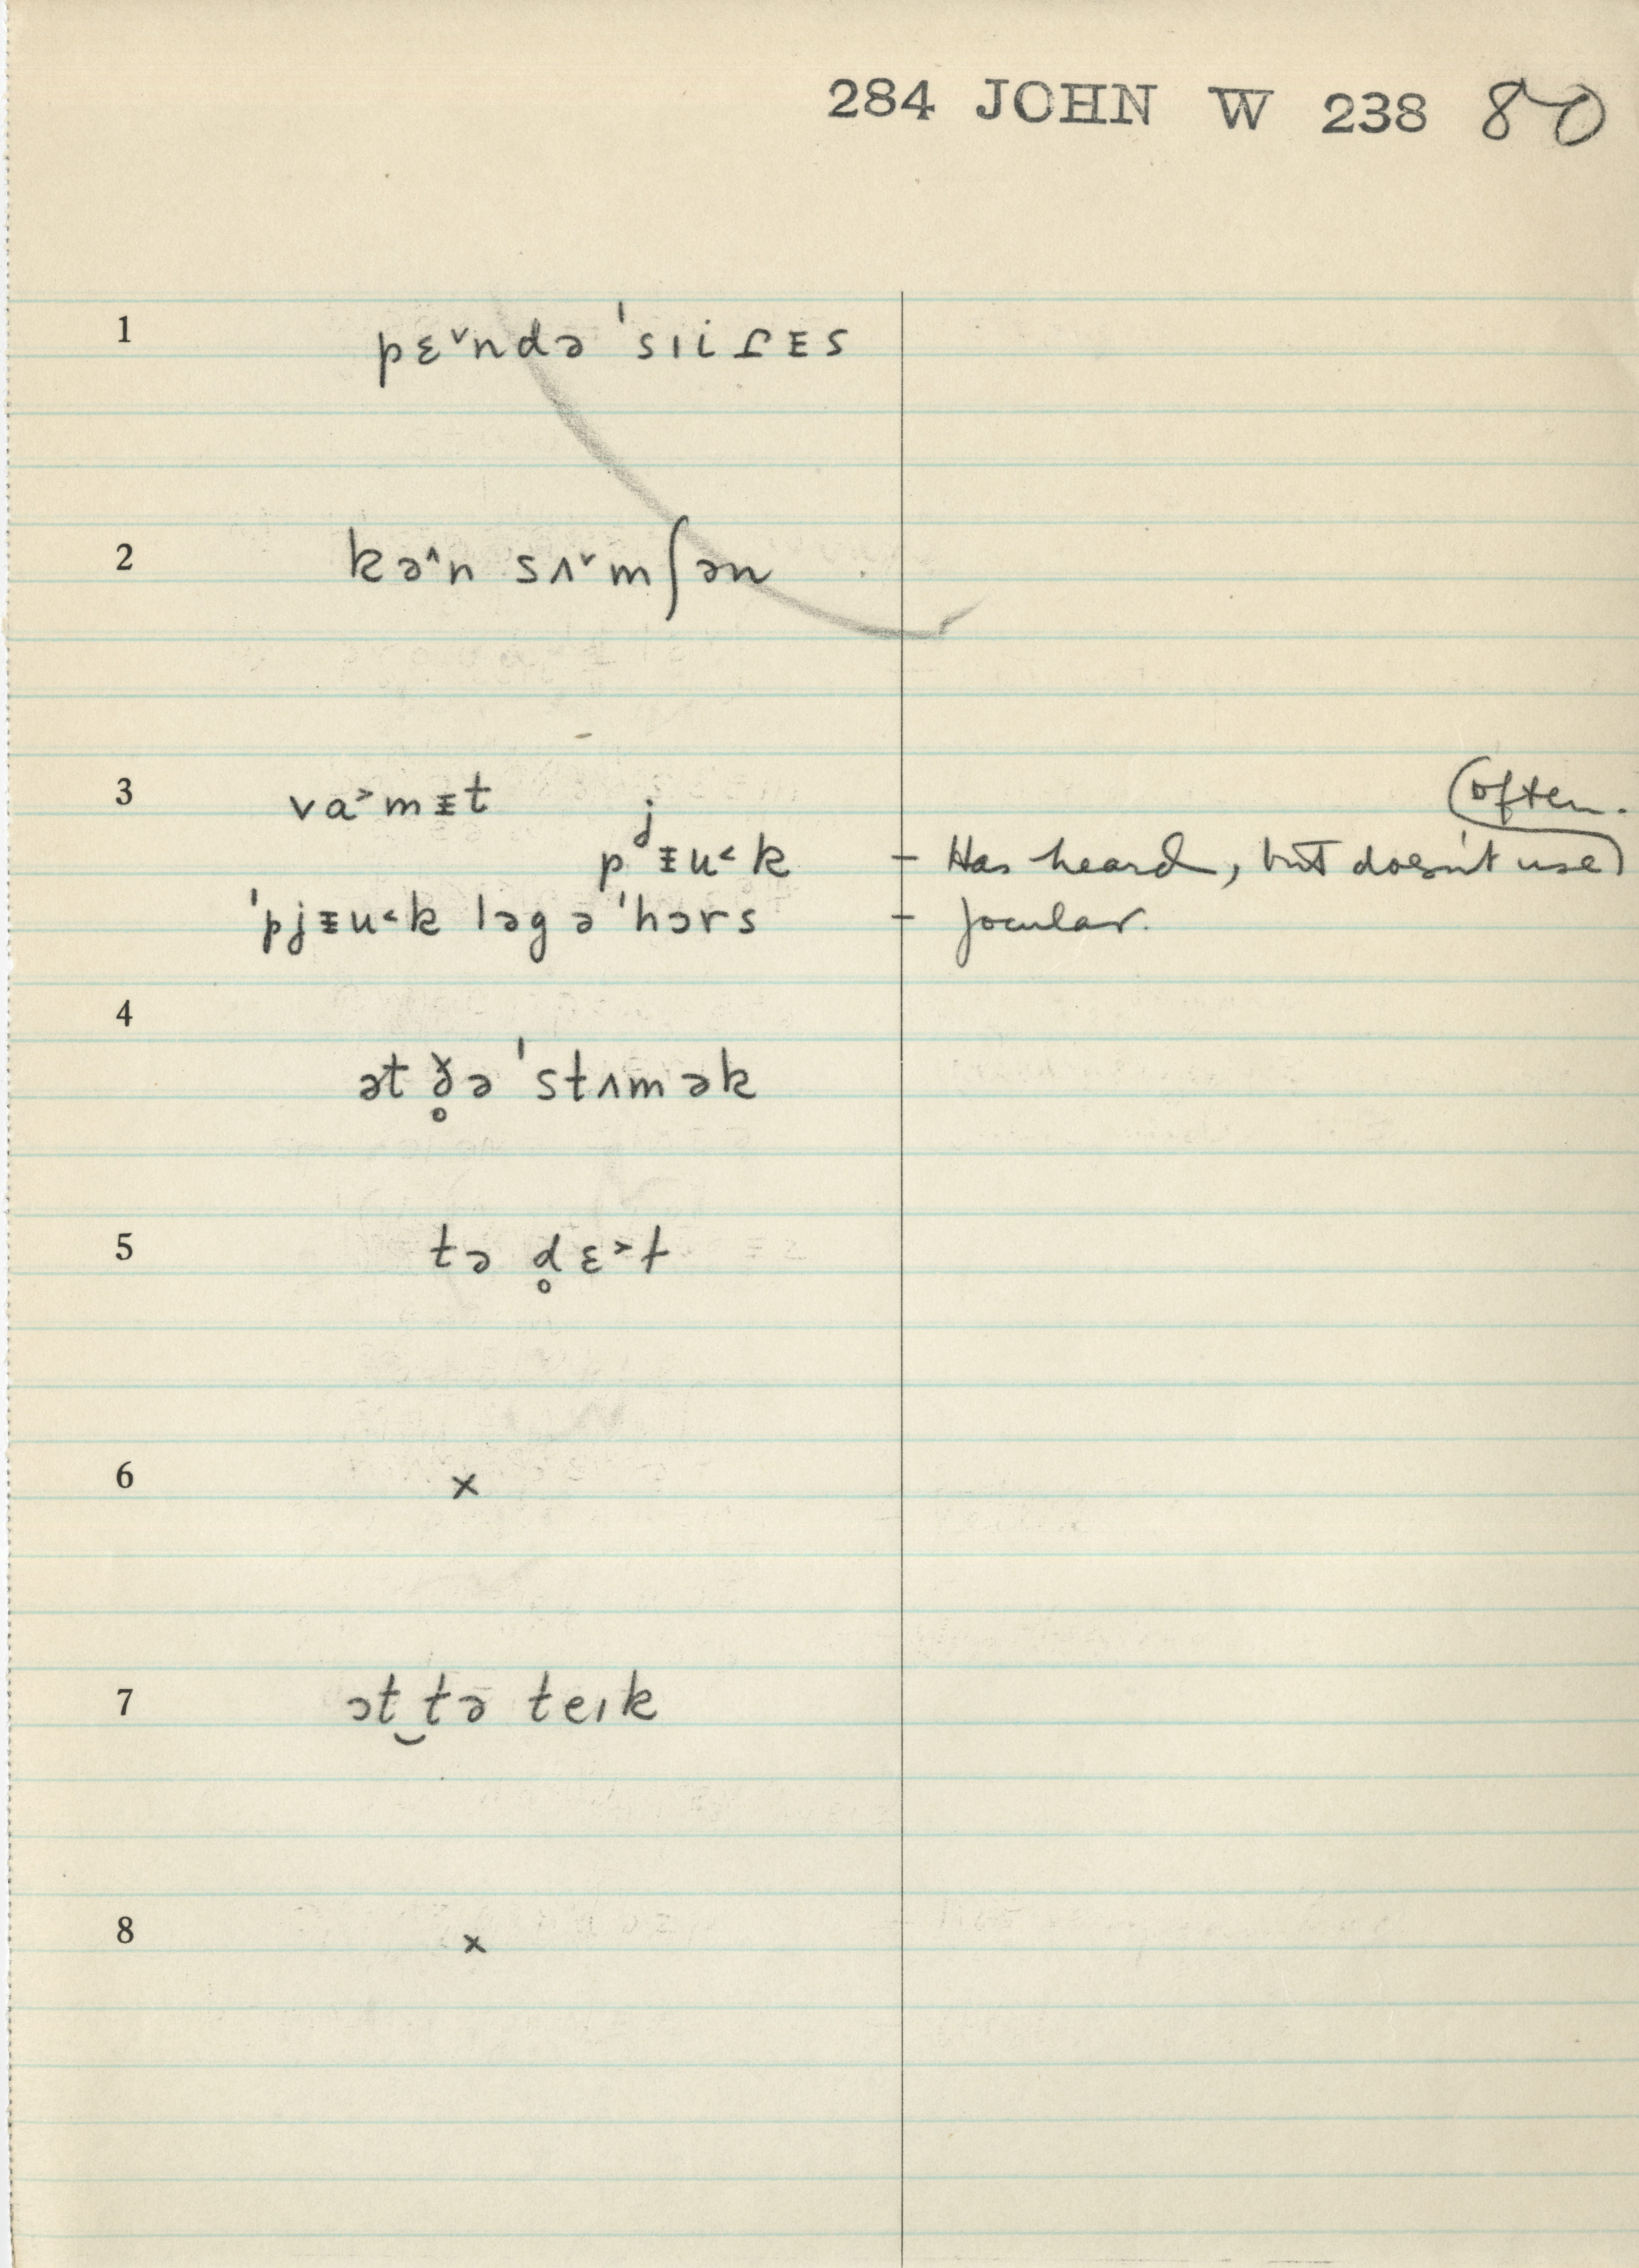 284 JOHN W 238 80
1 pɛ˅ndə ˈsɪiɾᵻs
2 kə˄n sʌ˅mʃən
3 va˃mᵻt
(often.
pʲᵻu˂k – Has heard, but doesn't use)
ˈpjᵻu˂k ləg ə ˈhɔrs – Jocular.
4
ət ð̥ə ˈstʌmək
5 tə d̥ɛ˃t
6 x
7 ət‿tə teɪk
8 x